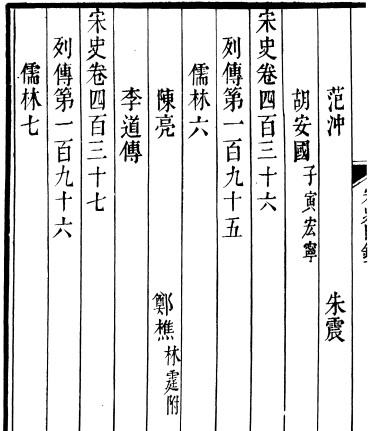 范沖 朱震
胡安國 子寅宏寧
宋史卷四百三十六
列傳第一百九十五
儒林六
陳亮 鄭樵 林霆附
李道傳
宋史卷四百三十七
列傳第一百九十六
儒林七